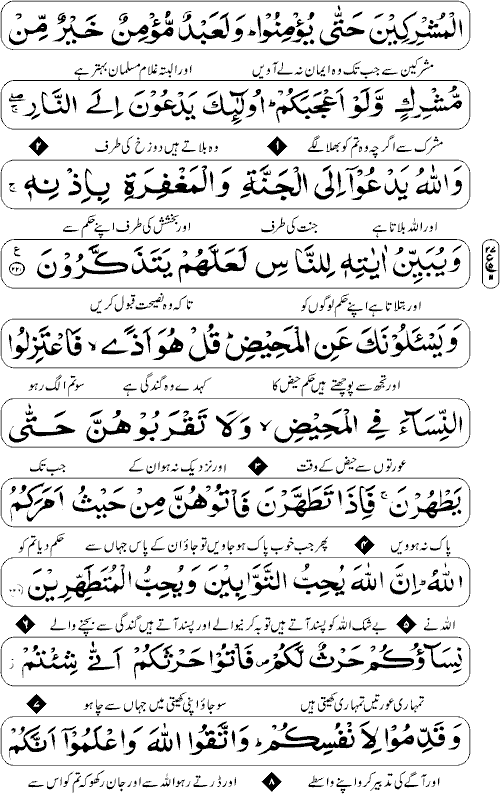 الْمُشْرِكِيْنَ حَتّٰى يُؤْمِنُوْا ؕ وَلَعَبْدٌ مُّؤْمِنٌ خَيْرٌ مِّنْ
مشرکین سے جب تک وہ ایمان نہ لے آویں اور البتہ غلام مسلمان بہتر ہے
مُّشْرِكٍ وَّلَوْ اَعْجَبَكُمْ ؕ اُولٰٓئِكَ يَدْعُوْنَ اِلَى النَّارِ
مشرک سے اگرچہ وہ تم کو بھلا لگے ۱ وہ بلاتے ہیں دوزخ کی طرف ۲
وَاللّٰهُ يَدْعُوْٓا اِلَى الْجَنَّةِ وَالْمَغْفِرَةِ بِاِذْنِهٖ ۚ
اور اللہ بلاتا ہے جنت کی طرف اور بخشش کی طرف اپنے حکم سے
وَيُبَيِّنُ اٰيٰتِهٖ لِلنَّاسِ لَعَلَّهُمْ يَتَذَكَّرُوْنَ
اور بتلاتا ہے اپنے حکم لوگوں کو تاکہ وہ نصیحت قبول کریں
وَيَسْـَٔلُوْنَكَ عَنِ الْمَحِيْضِ ؕ قُلْ هُوَ اَذًى ۙ فَاعْتَزِلُوا
اور تجھ سے پوچھتے ہیں حکم حیض کا کہدے وہ گندگی ہے سو تم الگ رہو
النِّسَآءَ فِى الْمَحِيْضِ ۙ وَلَا تَقْرَبُوْهُنَّ حَتّٰى
عورتوں سے حیض کے وقت ۳ اور نزدیک نہ ہو ان کے جب تک
يَطْهُرْنَ ۚ فَاِذَا تَطَهَّرْنَ فَاْتُوْهُنَّ مِنْ حَيْثُ اَمَرَكُمُ
پاک نہ ہوویں ۴ پھر جب خوب پاک ہو جاویں تو جاؤ ان کے پاس جہاں سے حکم دیا تم کو
اللّٰهُ ؕ اِنَّ اللّٰهَ يُحِبُّ التَّوَّابِيْنَ وَيُحِبُّ الْمُتَطَهِّرِيْنَ
اللہ نے ۵ بے شک اللہ کو پسند آتے ہیں توبہ کرنیوالے اور پسند آتے ہیں گندگی سے بچنے والے ۶
نِسَآؤُكُمْ حَرْثٌ لَّكُمْ ۪ فَاْتُوْا حَرْثَكُمْ اَنّٰى شِئْتُمْ ز
تمہاری عورتیں تمہاری کھیتی ہیں سو جاؤ اپنی کھیتی میں جہاں سے چاہو ۷
وَقَدِّمُوْا لِاَنْفُسِكُمْ ؕ وَاتَّقُوا اللّٰهَ وَاعْلَمُوْٓا اَنَّكُمْ
اور آگے کی تدبیر کرو اپنے واسطے ۸ اور ڈرتے رہو اللہ سے اور جان رکھو کہ تم کو اس سے